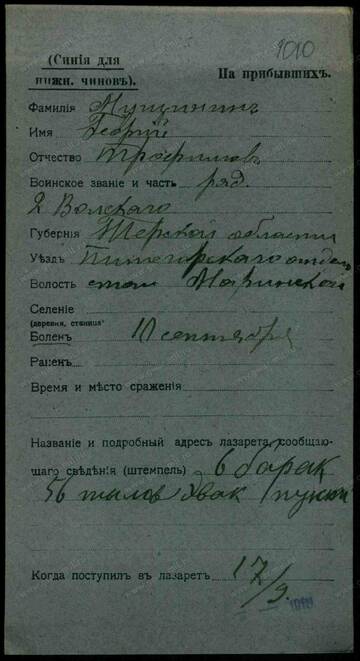 1010
(Синія для
нижн. чиновъ).
На прибывшихъ.
Фамилія
Имя Георгій
Отчество Трофимов
Воинское званіе и часть ряд.
2 Волгскаго
Губернія Терской области
Уѣздъ Пятигорскаго отдѣл
Волость стан Маринской
Селеніе
(деревня, станица)
Боленъ 10 сентября
Раненъ
Время и мѣсто сраженія
Названіе и подробный адресъ лазарета, сообщаю-
щаго свѣдѣнія (штемпель) 6 барак
56 тылов эвак пункт
Когда поступилъ въ лазаретъ 17/9.